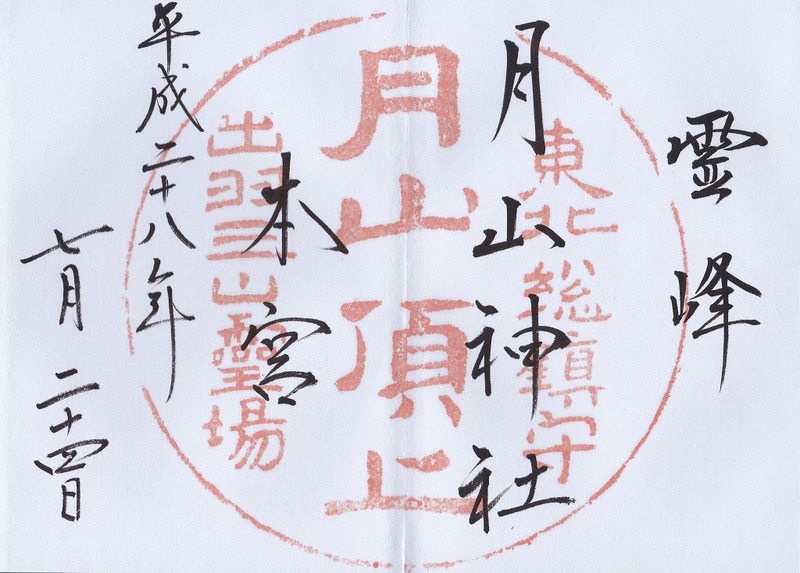 霊峰
月山神社
本宮
平成二十八年
七月二十四日
東北総鎮守
月山頂上
出羽三山霊場